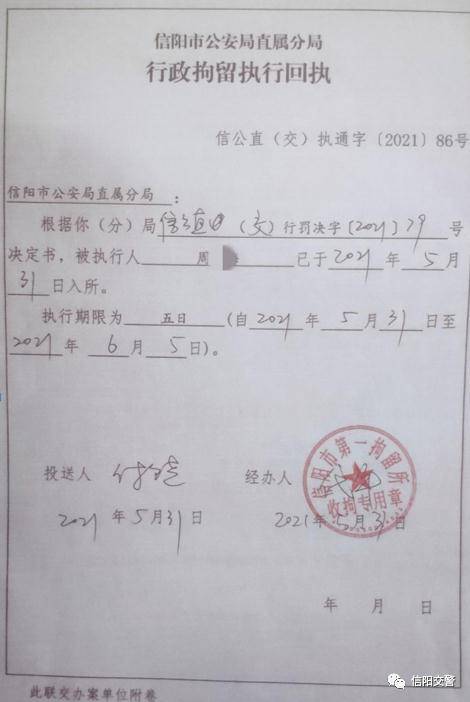 信阳市公安局直属分局
行政拘留执行回执
信公直（交）执通字〔2021〕86号
信阳市公安局直属分局：
根据你（分）局信公直（交）行罚决字〔2021〕79号
决定书，被执行人 周 已于2021年5月
31日入所。
执行期限为五日（自2021年5月31日至
2021年6月5日）。
投送人
经办人
2021年5月31日
2021年5月31日
信阳市第一拘留所
收拘专用章
年 月 日
此联交办案单位附卷
信阳交警